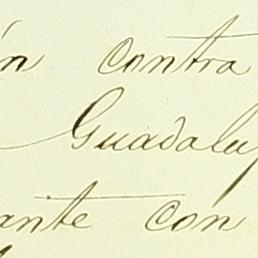 ón contra
Guadalup
ante con